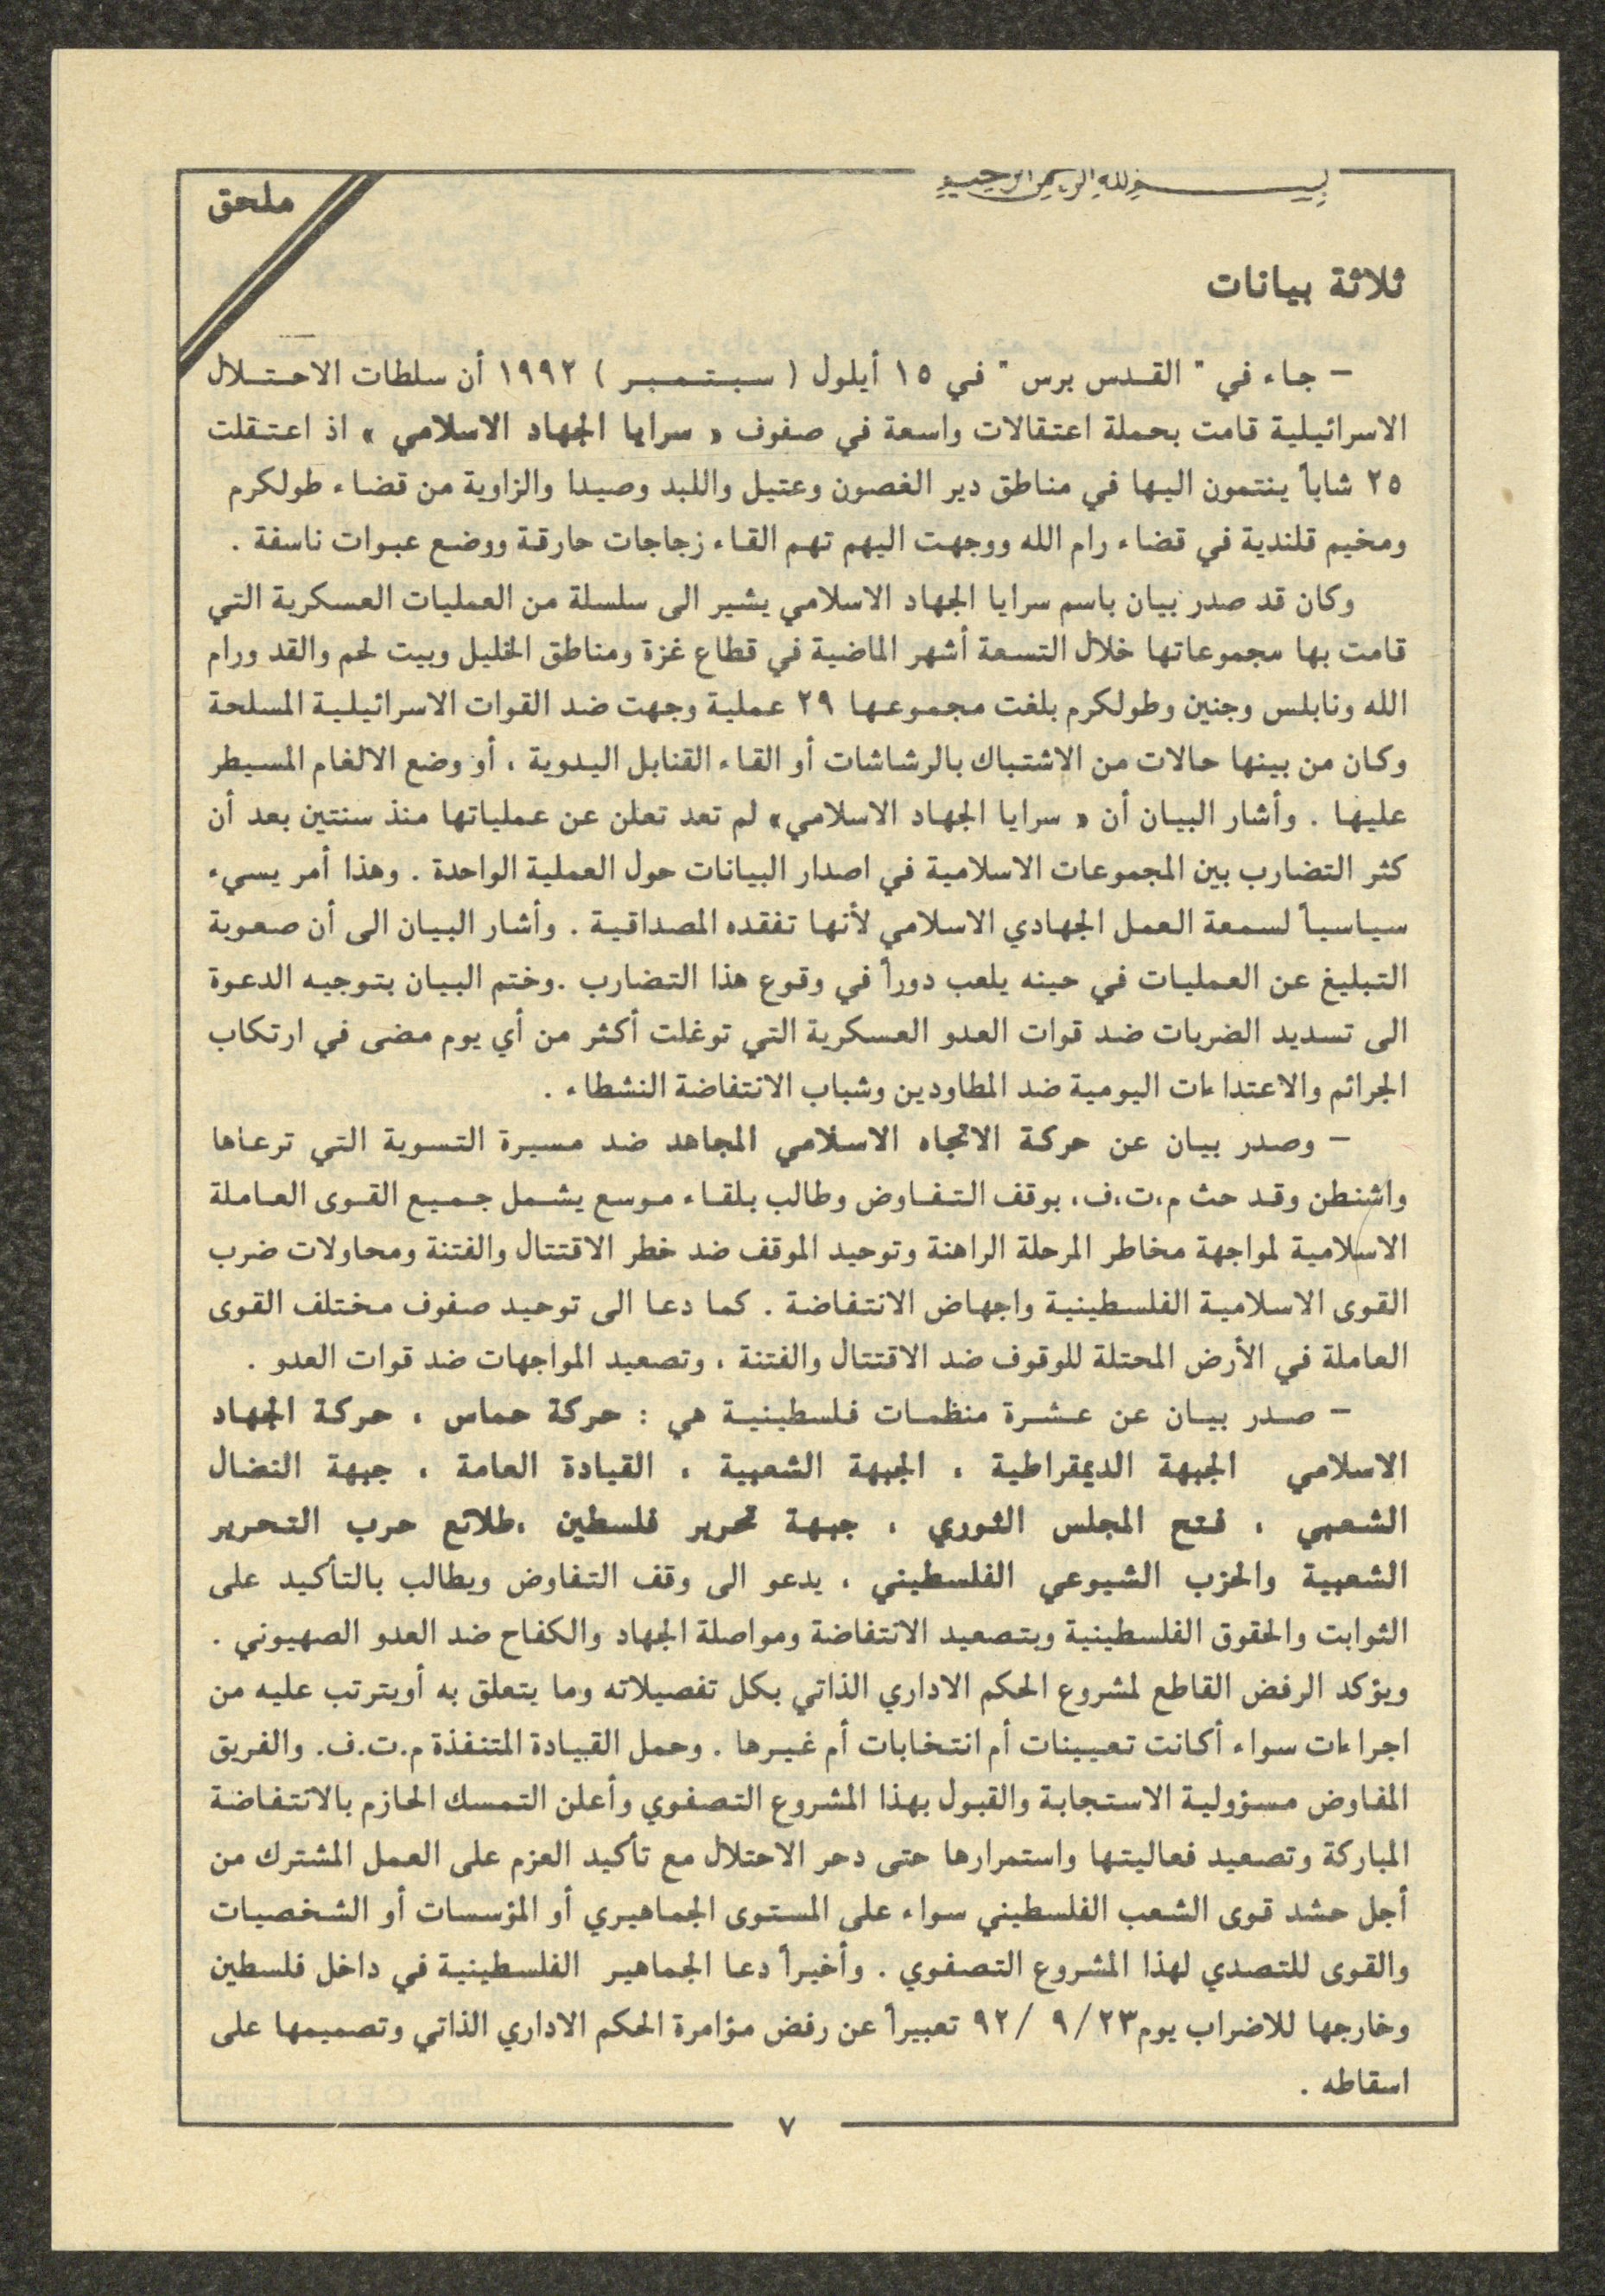 بسم الله الرحمن الرحيم
ملحق
ثلاثة بيانات
– جاء في " القدس برس " في ١٥ أيلول ( سبتمبر ) ١٩٩٢ أن سلطات الاحتلال
الاسرائيلية قامت بحملة اعتقالات واسعة في صفوف « سرايا الجهاد الاسلامي » اذ اعتقلت
٢٥ شاباً ينتمون اليها في مناطق دير الغصون وعتيل واللبد وصيدا والزاوية من قضاء طولكرم
ومخيم قلندية في قضاء رام الله ووجهت اليهم تهم القاء زجاجات حارقة ووضع عبوات ناسفة .
وكان قد صدر بيان باسم سرايا الجهاد الاسلامي يشير الى سلسلة من العمليات العسكرية التي
قامت بها مجموعاتها خلال التسعة أشهر الماضية في قطاع غزة ومناطق الخليل وبيت لحم والقد ورام
الله ونابلس وجنين وطولكرم بلغت مجموعها ٢٩ عملية وجهت ضد القوات الاسرائيلية المسلحة
وكان من بينها حالات من الاشتباك بالرشاشات أو القاء القنابل اليدوية ، أو وضع الالغام المسيطر
عليها . وأشار البيان أن « سرايا الجهاد الاسلامي» لم تعد تعلن عن عملياتها منذ سنتين بعد أن
كثر التضارب بين المجموعات الاسلامية في اصدار البيانات حول العملية الواحدة . وهذا أمر يسيء
سياسياً لسمعة العمل الجهادي الاسلامي لأنها تفقده المصداقية . وأشار البيان الى أن صعوبة
التبليغ عن العمليات في حينه يلعب دوراً في وقوع هذا التضارب .وختم البيان بتوجيه الدعوة
الى تسديد الضربات ضد قوات العدو العسكرية التي توغلت أكثر من أي يوم مضى في ارتكاب
الجرائم والاعتداءات اليومية ضد المطاودين وشباب الانتفاضة النشطاء .
– وصدر بيان عن حركة الاتجاه الاسلامي المجاهد ضد مسيرة التسوية التي ترعاها
واشنطن وقد حث م،ت،ف، بوقف التفاوض وطالب بلقاء موسع يشمل جميع القوى العاملة
الاسلامية لمواجهة مخاطر المرحلة الراهنة وتوحيد الموقف ضد خطر الاقتتال والفتنة ومحاولات ضرب
القوى الاسلامية الفلسطينية واجهاض الانتفاضة . كما دعا الى توحيد صفوف مختلف القوى
العاملة في الأرض المحتلة للوقوف ضد الاقتتال والفتنة ، وتصعيد المواجهات ضد قوات العدو .
– صدر بيان عن عشرة منظمات فلسطينية هي : حركة حماس ، حركة الجهاد
الاسلامي الجبهة الديمقراطية ، الجبهة الشعبية ، القيادة العامة ، جبهة النضال
الشعبي ، فتح المجلس الثوري ، جبهة تحرير فلسطين ،طلائع حرب التحرير
الشعبية والحزب الشيوعي الفلسطيني ، يدعو الى وقف التفاوض ويطالب بالتأكيد على
الثوابت والحقوق الفلسطينية وبتصعيد الانتفاضة ومواصلة الجهاد والكفاح ضد العدو الصهيوني .
ويؤكد الرفض القاطع لمشروع الحكم الاداري الذاتي بكل تفصيلاته وما يتعلق به أويترتب عليه من
اجراءات سواء أكانت تعيينات أم انتخابات أم غيرها . وحمل القيادة المتنفذة م.ت.ف. والفريق
المفاوض مسؤولية الاستجابة والقبول بهذا المشروع التصفوي وأعلن التمسك الحازم بالانتفاضة
المباركة وتصعيد فعاليتها واستمرارها حتى دحر الاحتلال مع تأكيد العزم على العمل المشترك من
أجل حشد قوى الشعب الفلسطيني سواء على المستوى الجماهيري أو المؤسسات أو الشخصيات
والقوى للتصدي لهذا المشروع التصفوي . وأخيراً دعا الجماهير الفلسطينية في داخل فلسطين
وخارجها للاضراب يوم٢٣/ ٩/ ٩٢ تعبيراً عن رفض مؤامرة الحكم الاداري الذاتي وتصميمها على
اسقاطه .
٧